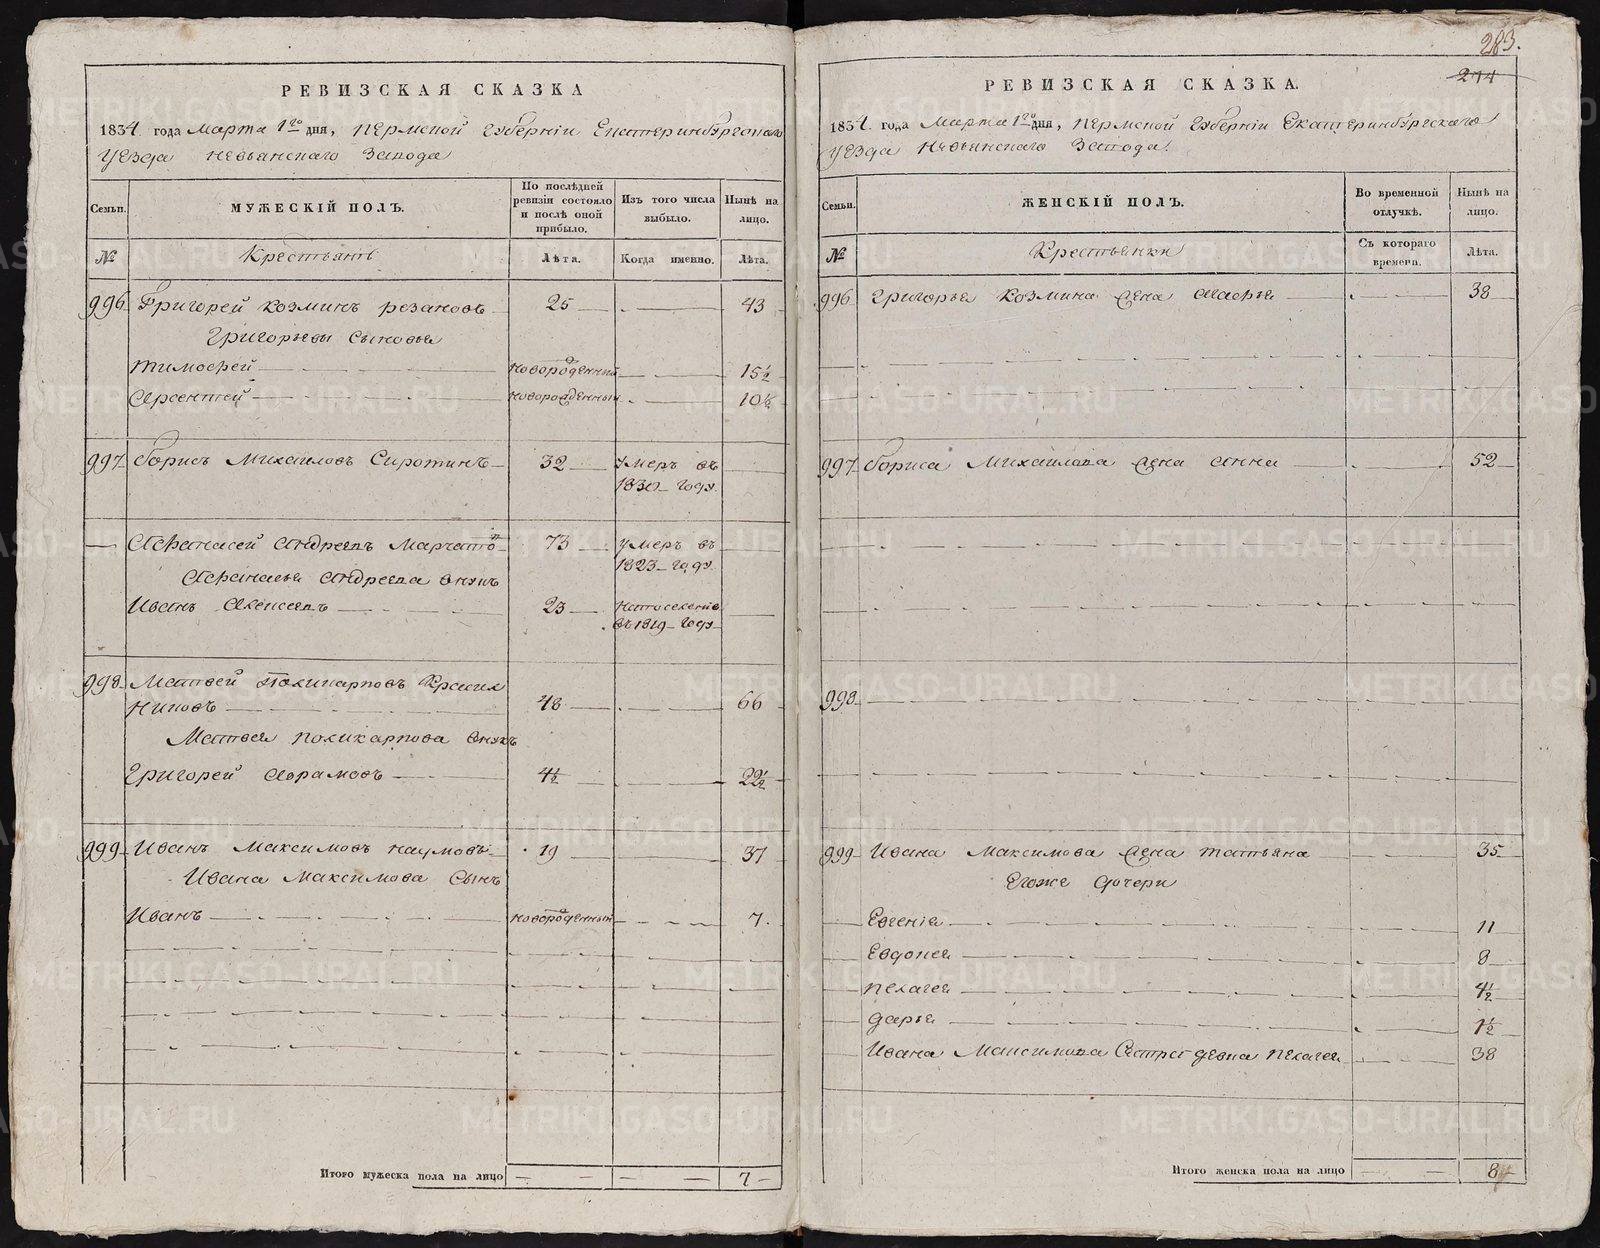 РЕВИЗСКАЯ СКАЗКА
1834. года Марта 1го дня, Пермской Губерніи Екатеринбургскаго
уезда Невьянского Завода
Семьи.
МУЖЕСКІЙ ПОЛЪ.
По послѣдней ревизіи состояло и послѣ оной прибыло.
Изъ того числа выбыло.
Нынѣ на лицо.
№
Крестьянъ
Лѣта.
Когда именно.
Лѣта.
996 Григорей Козминъ резановъ 25 43
Григорьевы сыновья
Тимофей новорожденный 15½
Арсентей новорожденный 10½
997 Борисъ Михаиловъ Сиротинъ 32 умеръ въ
1830 году
Афанасей Андреевъ 73 умеръ въ
1823 году
Афанасья Андреева внукъ
Иванъ Алексеевъ 23 на поселение
въ 1819 году
998 Матвей Поликарповъ Красил
никовъ 48 66
Матвея поликарпова внукъ
Григорей Аврамовъ 4½ 22½
999 Иванъ Максимовъ наумовъ 19 37
Ивана Максимова сынъ
Иванъ новорожденный 7
Итого мужеска пола на лицо 7
283.
274
РЕВИЗСКАЯ СКАЗКА.
1834. года Марта 1го дня, Пермской Губерніи Екатеринбургскаго
уезда Невьянского Завода.
Семьи.
ЖЕНСКІЙ ПОЛЪ.
Во временной отлучкѣ.
Нынѣ на лицо.
№
Крестьянки
Съ котораго времени.
Лѣта.
996 Григорья Козмина жена Марья 38
997 Бориса Михаилова жена Анна 52
998
999 Ивана Максимова жена татьяна 35
Егоже дочери
Евгенія 11
Евдокея 8
пелагея 4½
дарья 1½
Ивана Максимова Сестра девка пелагея 38
Итого женска пола на лицо 8
METRIKI.GASO-URAL.RU